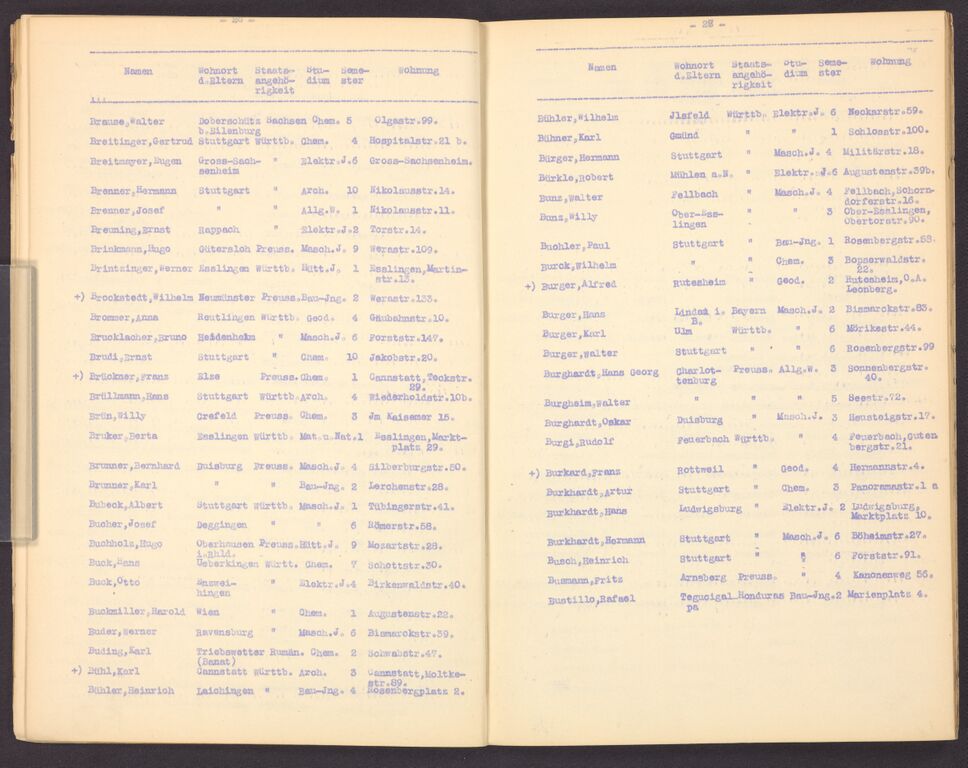 - 28 -
Namen Wohnort d.Eltern Staats-angehö-rigkeit Stu-dium Seme-ster Wohnung
...
Brause,Walter Doberschütz b.Eilenburg Sachsen Chem. 5 Olgastr.99.
Breitinger,Gertrud Stuttgart Württb. Chem. 4 Hospitalstr.21 b.
Breitmayer,Eugen Gross-Sach-senheim " Elektr.J.6 Gross-Sachsenheim.
Brenner,Hermann Stuttgart " Arch. 10 Nikolausstr.14.
Brenner,Josef " " Allg.W. 1 Nikolausstr.11.
Breuning,Ernst Rappach " Elektr.J.2 Torstr.14.
Brinkmann,Hugo Gütersloh Preuss. Masch.J. 9 Werastr.109.
Brintzinger,Werner Esslingen Württb. Hütt.J. 1 Esslingen,Martin-str.13.
+) Brockstedt,Wilhelm Neumünster Preuss.Bau-Jng. 2 Werastr.133.
Brommer,Anna Reutlingen Württb. Geod. 4 Gäubahnstr.10.
Brucklacher,Bruno Heidenheim " Masch.J. 6 Forststr.147.
Brudi,Ernst Stuttgart " Chem. 10 Jakobstr.20.
+) Brückner,Franz Elze Preuss.Chem. 1 Cannstatt,Teckstr. 29.
Brüllmann,Hans Stuttgart Württb.Arch. 4 Wiederholdstr.10b.
Brün,Willy Crefeld Preuss. Chem. 3 Jm Kaisemer 15.
Bruker,Berta Esslingen Württb. Mat.u.Nat.1 Esslingen,Markt-platz 29.
Brunner,Bernhard Duisburg Preuss. Masch.J. 4 Silberburgstr.50.
Brunner,Karl " " Bau-Jng. 2 Lerchenstr.28.
Bubeck,Albert Stuttgart Württb. Masch.J. 1 Tübingerstr.41.
Bucher,Josef Deggingen " " 6 Römerstr.58.
Buchholz,Hugo Oberhausen i.Rhld. Preuss.Hütt.J. 9 Mozartstr.28.
Buck,Hans Ueberkingen Württ. Chem. 7 Schottstr.30.
Buck,Otto Enzwei-hingen " Elektr.J.4 Birkenwaldstr.40.
Buckmiller,Harold Wien " Chem. 1 Augustenstr.22.
Buder,Werner Ravensburg " Masch.J. 6 Bismarckstr.39.
Buding,Karl Triebswetter (Banat) Rumän. Chem. 2 Schwabstr.47.
+) Bühl,Karl Cannstatt Württb. Arch. 3 Cannstatt,Moltke-str.89.
Bühler,Heinrich Laichingen " Bau-Jng. 4 Rosenbergplatz 2.
Namen Wohnort d.Eltern Staats-angehö-rigkeit Stu-dium Seme-ster Wohnung
Bühler,Wilhelm Jlsfeld Württb. Elektr.J. 6 Neckarstr.59.
Bühner,Karl Gmünd " " 1 Schlosstr.100.
Bürger,Hermann Stuttgart " Masch.J. 4 Militärstr.18.
Bürkle,Robert Mühlen a.N. " Elektr.J.6 Augustenstr.39b.
Bunz,Walter Fellbach " Masch.J. 4 Fellbach,Schorn-dorferstr.16.
Bunz,Willy Ober-Ess-lingen " " 3 Ober-Esslingen, Obertorstr.90.
Buchler,Paul Stuttgart " Bau-Jng. 1 Rosenbergstr.53.
Burck,Wilhelm " " Chem. 3 Bopserwaldstr. 22.
+) Burger,Alfred Rutesheim " Geod. 2 Rutesheim,O.A. Leonberg.
Burger,Hans Lindau i. B. Bayern Masch.J. 2 Bismarckstr.83.
Burger,Karl Ulm Württb. " 6 Mörikestr.44.
Burger,Walter Stuttgart " " 6 Rosenbergstr.99
Burghardt,Hans Georg Charlot-tenburg Preuss. Allg.W. 3 Sonnenbergstr. 40.
Burgheim,Walter " " " 5 Seestr.72.
Burghardt,Oskar Duisburg " Masch.J. 3 Heusteigstr.17.
Burgi,Rudolf Feuerbach Württb. " 4 Feuerbach,Guten bergstr.21.
+) Burkard,Franz Rottweil " Geod. 4 Hermannstr.4.
Burkhardt,Artur Stuttgart " Chem. 3 Panoramastr.1 a
Burkhardt,Hans Ludwigsburg " Elektr.J. 2 Ludwigsburg, Marktplatz 10.
Burkhardt,Hermann Stuttgart " Masch.J. 6 Böheimstr.27.
Busch,Heinrich Stuttgart " " 6 Forststr.91.
Busmann,Fritz Arnsberg Preuss. " 4 Kanonenweg 56.
Bustillo,Rafael Tegucigal-pa Honduras Bau-Jng.2 Marienplatz 4.